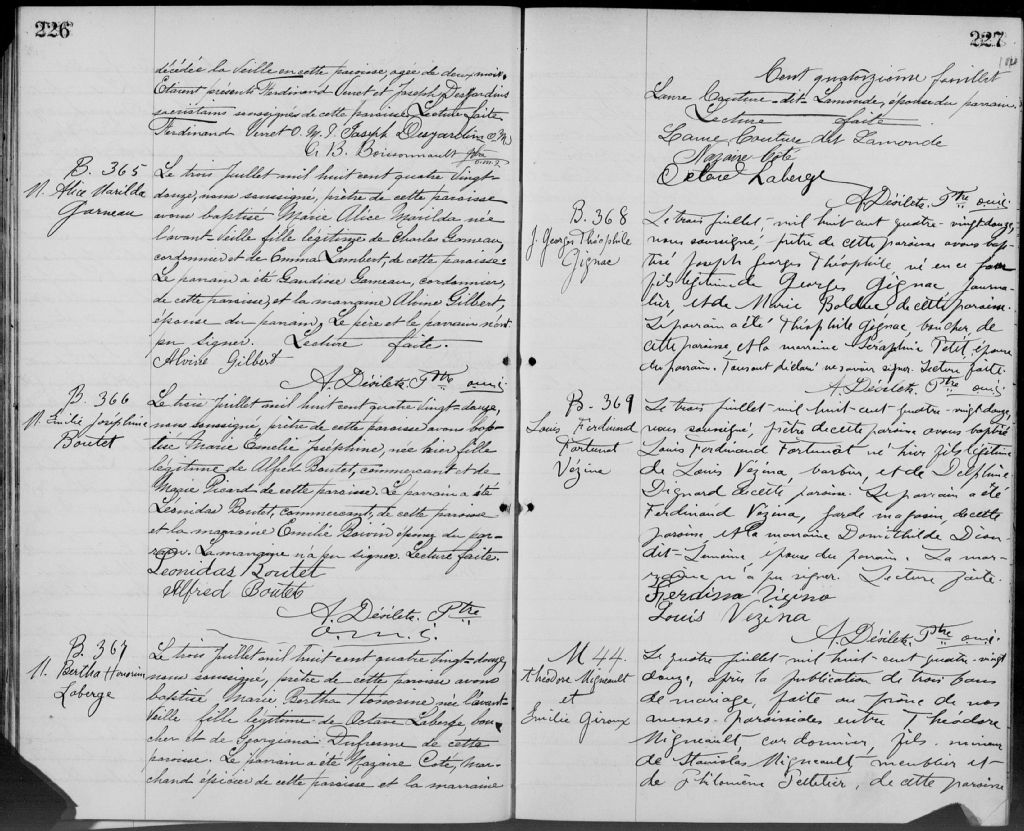 226
décédée la veille en cette paroisse, agée de deux mois.
Etaient présents Ferdinand Vinet et Joseph Desjardins
sacristains soussignés de cette paroisse Lecture faite
Ferdinand Vinet O.M.I. Joseph Desjardins O.M.
G. B. Boissonnault ptre
o.m.i.
B. 365
M. Alice Marilda
Garneau
Le trois Juillet mil huit cent quatre vingt-
douze, nous soussigné, prêtre de cette paroisse
avons baptisé Marie Alice Marilda née
l'avant-veille fille légitime de Charles Garneau,
cordonnier et de Emma Lambert, de cette paroisse.
Le parrain a été Gaudiose Garneau, cordonnier,
de cette paroisse, et la marraine Alvine Gilbert,
épouse du parrain, Le père et le parrain n'ont
pu signer. Lecture faite.
Alvine Gilbert
A. Désilets. Ptre omi.
B. 366
M. Emilie Joséphine
Boutet
Le trois Juillet mil huit cent quatre vingt-douze,
nous soussigné, prêtre de cette paroisse avons bap-
tisé Marie Emelie Joséphine, née hier fille
légitime de Alfred Boutet, commerçant et de
Marie Picard de cette paroisse. Le parrain a été
Léonidas Boutet, commercant, de cette paroisse
et la marraine Emilie Boivin épouse du par-
rain. La marraine n'a pu signer. Lecture faite.
Leonidas Boutet
Alfred Boutet
A. Désilets. Ptre
o.m.i.
B. 367
M. Bertha Honorine
Laberge
Le trois Juillet mil huit cent quatre vingt-douze,
nous soussigné, prêtre de cette paroisse avons
baptisé Marie Bertha Honorine née l'avant-
veille fille légitime de Octave Laberge, bou-
cher et de Georgiana Dufresne de cette
paroisse. Le parrain a été Nazaire Coté, mar-
chand épicier de cette paroisse et la marraine
227
Cent quatorzième feuillet
Laure Couture-dit-Lamonde, épouse du parrain.
Lecture faite.
Laure Couture dit Lamonde
Nazaire Côté
Octave Laberge
A. Désilets. Ptre omi.
B. 368
J. Georges Théophile
Gignac
Le trois juillet, mil huit-cent quatre-vingt douze,
nous soussigné, prêtre de cette paroisse avons bap-
tisé Joseph Georges Théophile, né en ce jour
fils légitime de Georges Gignac, journa-
lier et de Marie Bolduc de cette paroisse.
Le parrain a été Théophile Gignac, boucher, de
cette paroisse, et la marraine Séraphine Petit, épouse
du parrain. Tous ont déclaré ne savoir signer. Lecture faite.
A. Désilets. Ptre omi.
B. 369
Louis Ferdinand
Fortunat
Vézina
Le trois juillet mil huit-cent quatre-vingt douze,
nous soussigné, prêtre de cette paroisse avons baptisé
Louis Ferdinand Fortunat né hier fils légitime
de Louis Vézina, barbier, et de Delphine
Dignard de cette paroisse. Le parrain a été
Ferdinand Vézina, garde magasin, de cette
paroisse, et la marraine Domithilde Dion-
dit-Lemoine, épouse du parrain. La mar-
raine n'a pu signer. Lecture faite.
Ferdina Vizina
Louis Vezina
A. Désilets. Ptre omi.
M 44.
Théodore Migneault
et
Emilie Giroux
Le quatre juillet mil huit-cent quatre-vingt
douze, après la publication de trois bans
de mariage, faite au prône de nos
messes paroissiales entre Théodore
Migneault, cordonnier, fils mineur
de Stanislas Migneault, meublier et
de Philomène Pelletier, de cette paroisse